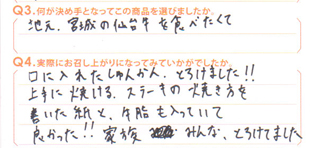 Q3.何が決め手となってこの商品を選びましたか。
地元、宮城の仙台牛を食べたくて
Q4.実際にお召し上がりになってみていかがでしたか。
口に入れたしゅんかん、とろけました!!
上手に焼ける、ステーキの焼き方を
書いた紙と、牛脂も入っていて
良かった!! 家族 みんな、とろけてました